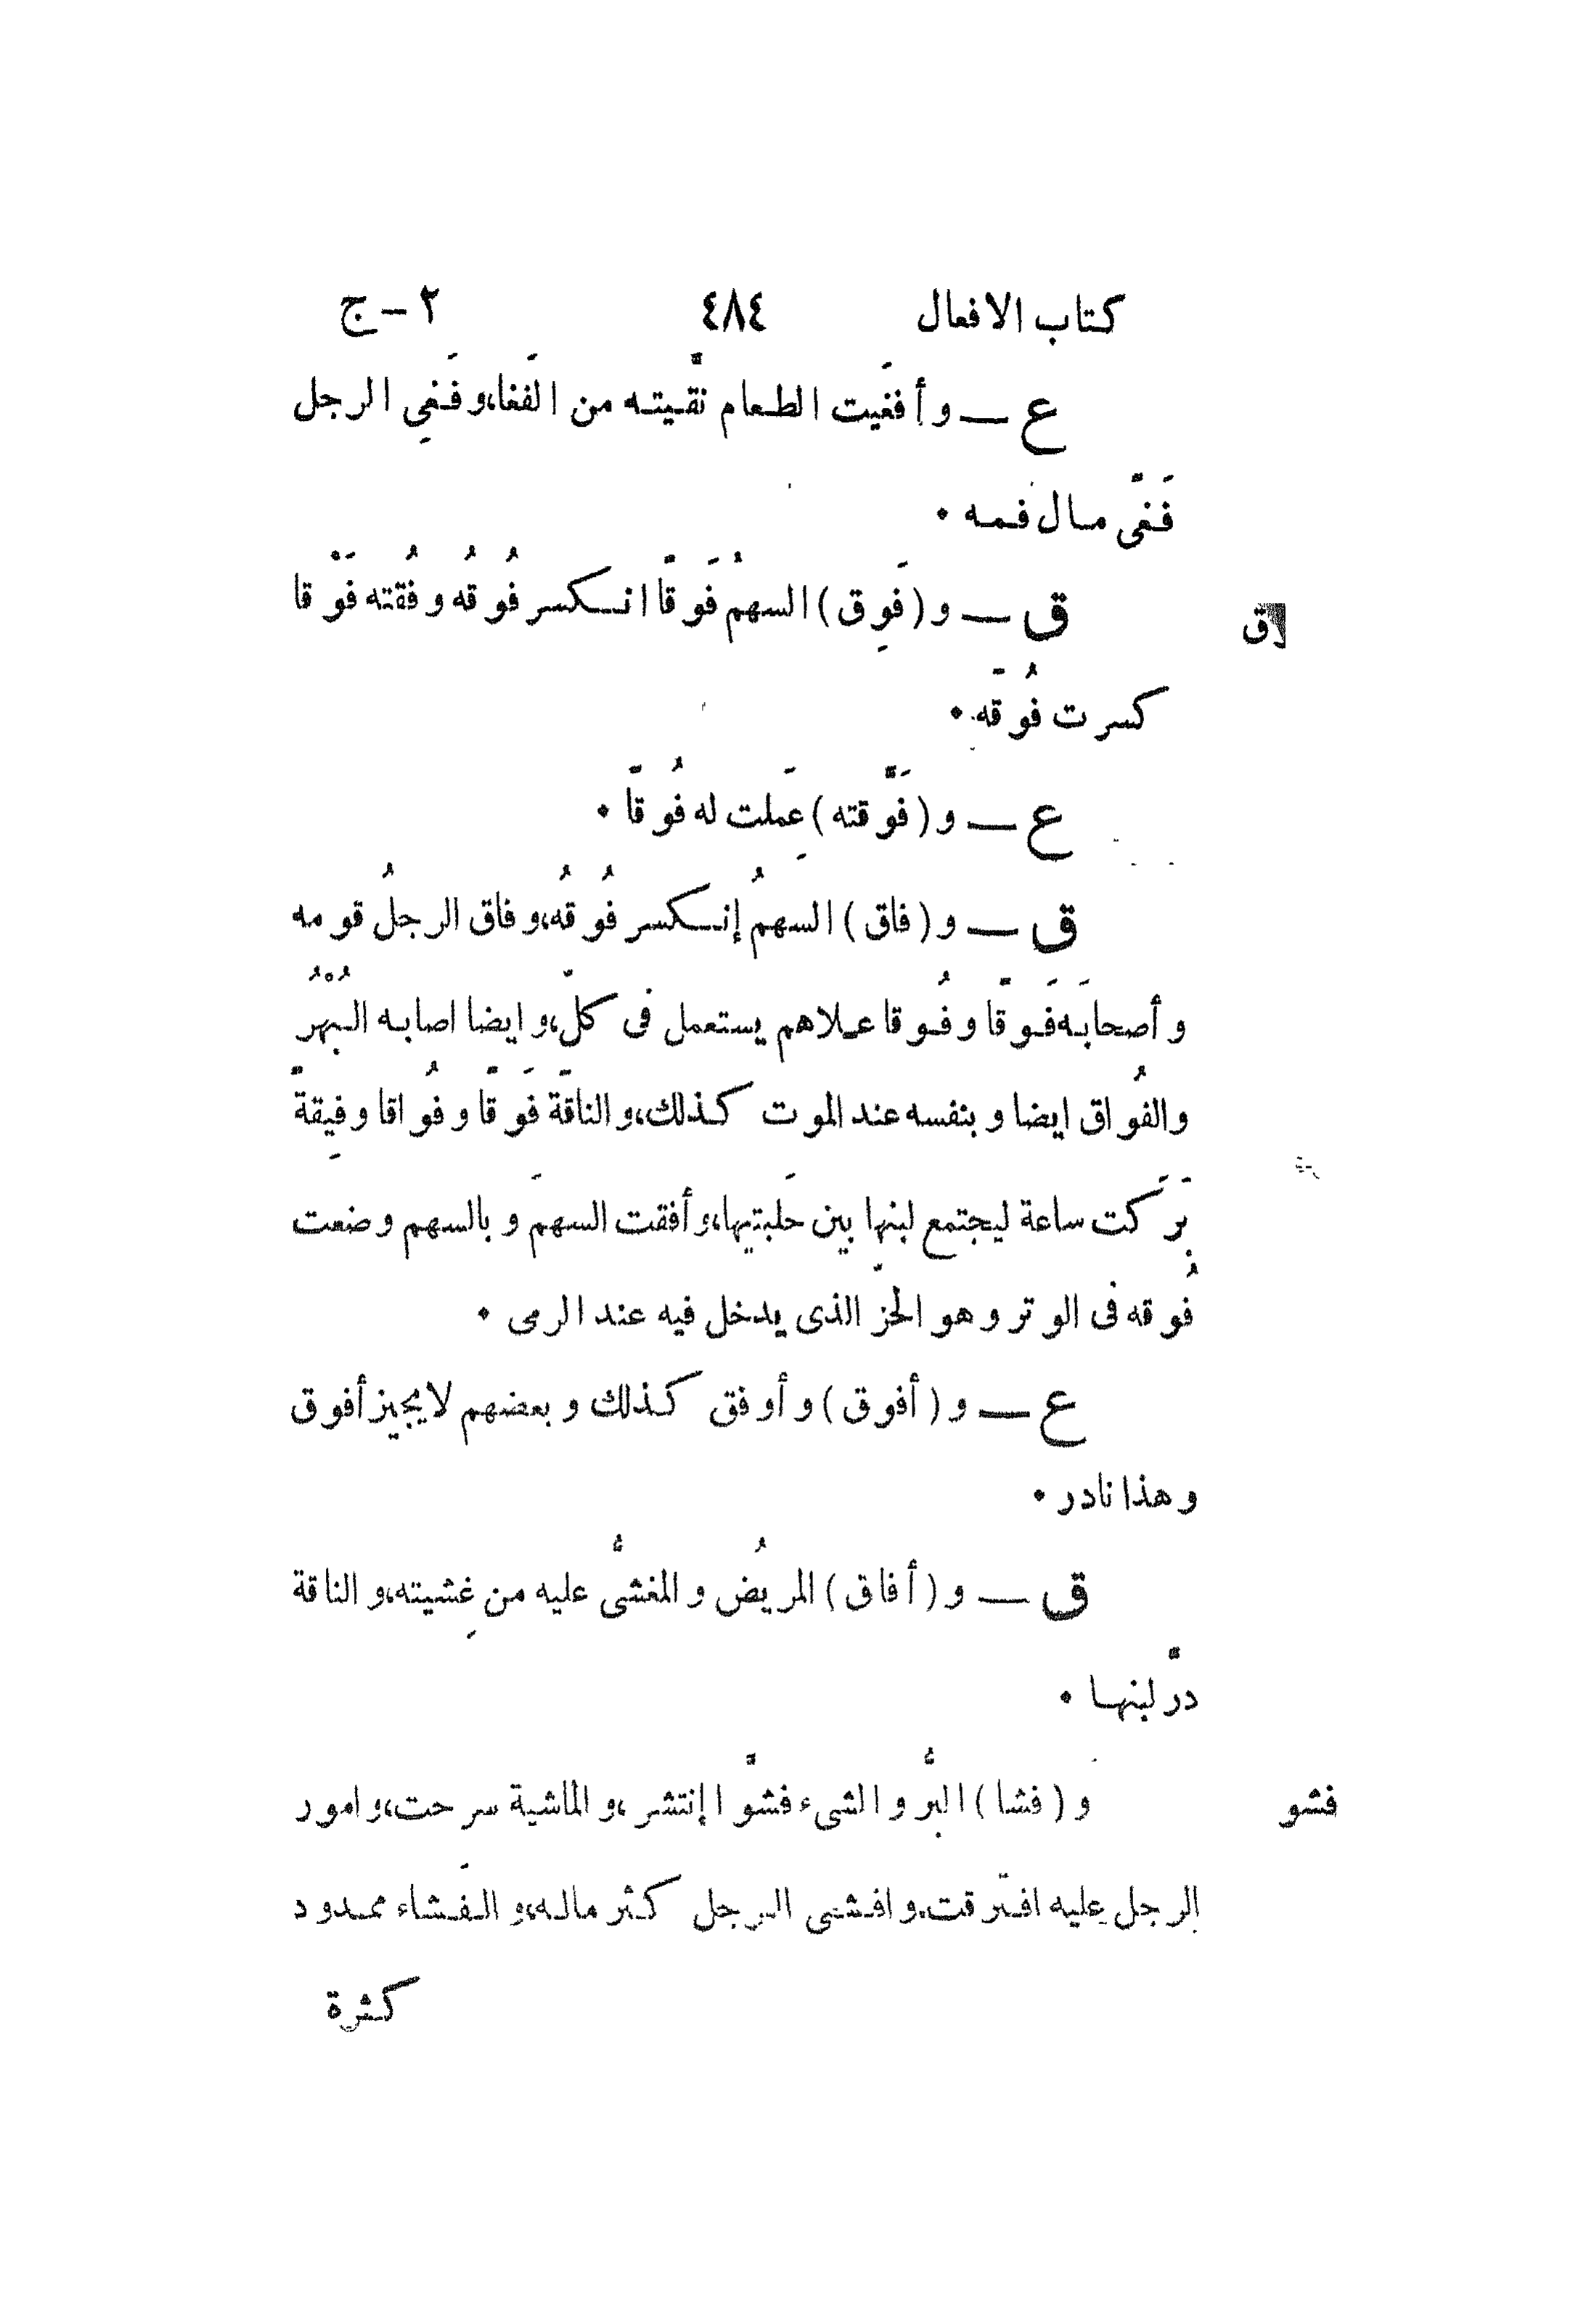 كتاب الافعال ٤٨٤ ٢ - ج
ع ــ و أفغَيت الطعام نقَّيته من الفَغا، و فَغِى الرجل
فَغًى مال فمه ٠
ق ــ و (فَوِق) السهمُ فَوَقًا انكسر فُوقُه و فُقته فَوْقا
كسرت فُوقَه ٠
ع ــ و (فَوَّقته) عَمِلت له فُوقًا ٠
ق ــ و (فاق) السهمُ إنكسر فُوقُه، و فاق الرجلُ قومه
و أصحابَه فَوقًا و فُوقا علاهم يستعمل فى كلّ، و ايضا اصابه البُهْرُ
والفُواق ايضا و بنفسه عند الموت كذلك، و الناقَة فَوقًا و فُواقا و فِيقةً
بَرَكت ساعة ليجتمع لبنها بين حَلبتيها، و أفقت السهمَ و بالسهم وضعت
فُوقه فى الوتر و هو الحزّ الذى يدخل فيه عند الرمى ٠
ع ــ و (أفوق) و أوفق كذلك و بعضهم لا يجيز أفوق
و هذا نادر ٠
ق ــ و (أفاق) المريضُ و المغشىُّ عليه من غِشيته، و الناقة
درَّ لبنها ٠
فشو و (فشا) البرُّ و الشىء فشوًّا إنتشر، و الماشية سرحت، و امور
الرجل عليه افترقت، و افشى الرجل كثر ماله، و الفَشاء ممدود
كثرة